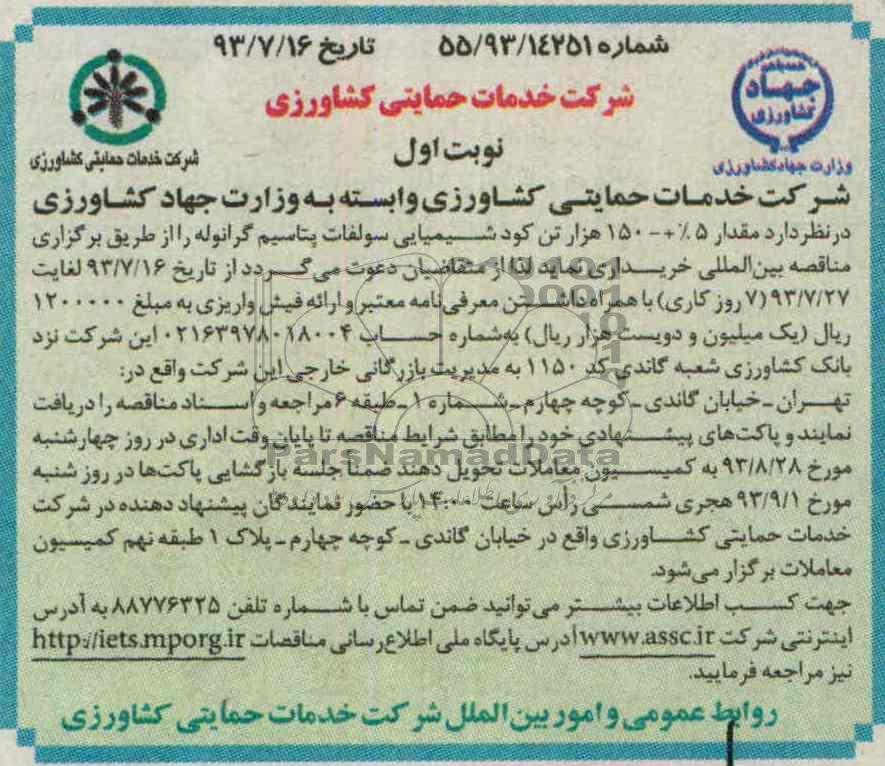 شماره ۵۵/۹۳/۱۴۲۵۱ تاریخ ۹۳/۷/۱۶
جهاد کشاورزی
وزارت جهاد کشاورزی
شرکت خدمات حمایتی کشاورزی
شرکت خدمات حمایتی کشاورزی
نوبت اول
شرکت خدمات حمایتی کشاورزی وابسته به وزارت جهاد کشاورزی
درنظر دارد مقدار ۵٪+- ۱۵۰ هزار تن کود شیمیایی سولفات پتاسیم گرانوله را از طریق برگزاری
مناقصه بین‌المللی خریداری نماید لذا از متقاضیان دعوت می‌گردد از تاریخ ۹۳/۷/۱۶ لغایت
۹۳/۷/۲۷ (۷ روز کاری) با همراه داشتن معرفی‌نامه معتبر و ارائه فیش واریزی به مبلغ ۱۲۰۰۰۰۰
ریال (یک میلیون و دویست هزار ریال) به‌شماره حساب ۰۲۱۶۳۹۷۸۰۱۸۰۰۴ این شرکت نزد
بانک کشاورزی شعبه گاندی کد ۱۱۵۰ به مدیریت بازرگانی خارجی این شرکت واقع در:
تهران ـ خیابان گاندی ـ کوچه چهارم ـ شماره ۱ ـ طبقه ۶ مراجعه و اسناد مناقصه را دریافت
نمایند و پاکت‌های پیشنهادی خود را مطابق شرایط مناقصه تا پایان وقت اداری در روز چهارشنبه
مورخ ۹۳/۸/۲۸ به کمیسیون معاملات تحویل دهند ضمناً جلسه بازگشایی پاکت‌ها در روز شنبه
مورخ ۹۳/۹/۱ هجری شمسی رأس ساعت ۱۴:۰۰ با حضور نمایندگان پیشنهاد دهنده در شرکت
خدمات حمایتی کشاورزی واقع در خیابان گاندی ـ کوچه چهارم ـ پلاک ۱ طبقه نهم کمیسیون
معاملات برگزار می‌شود.
جهت کسب اطلاعات بیشتر می‌توانید ضمن تماس با شماره تلفن ۸۸۷۷۶۳۲۵ به آدرس
اینترنتی شرکت www.assc.ir آدرس پایگاه ملی اطلاع‌رسانی مناقصات http://iets.mporg.ir
نیز مراجعه فرمایید.
روابط عمومی و امور بین‌الملل شرکت خدمات حمایتی کشاورزی
ParsNamadData